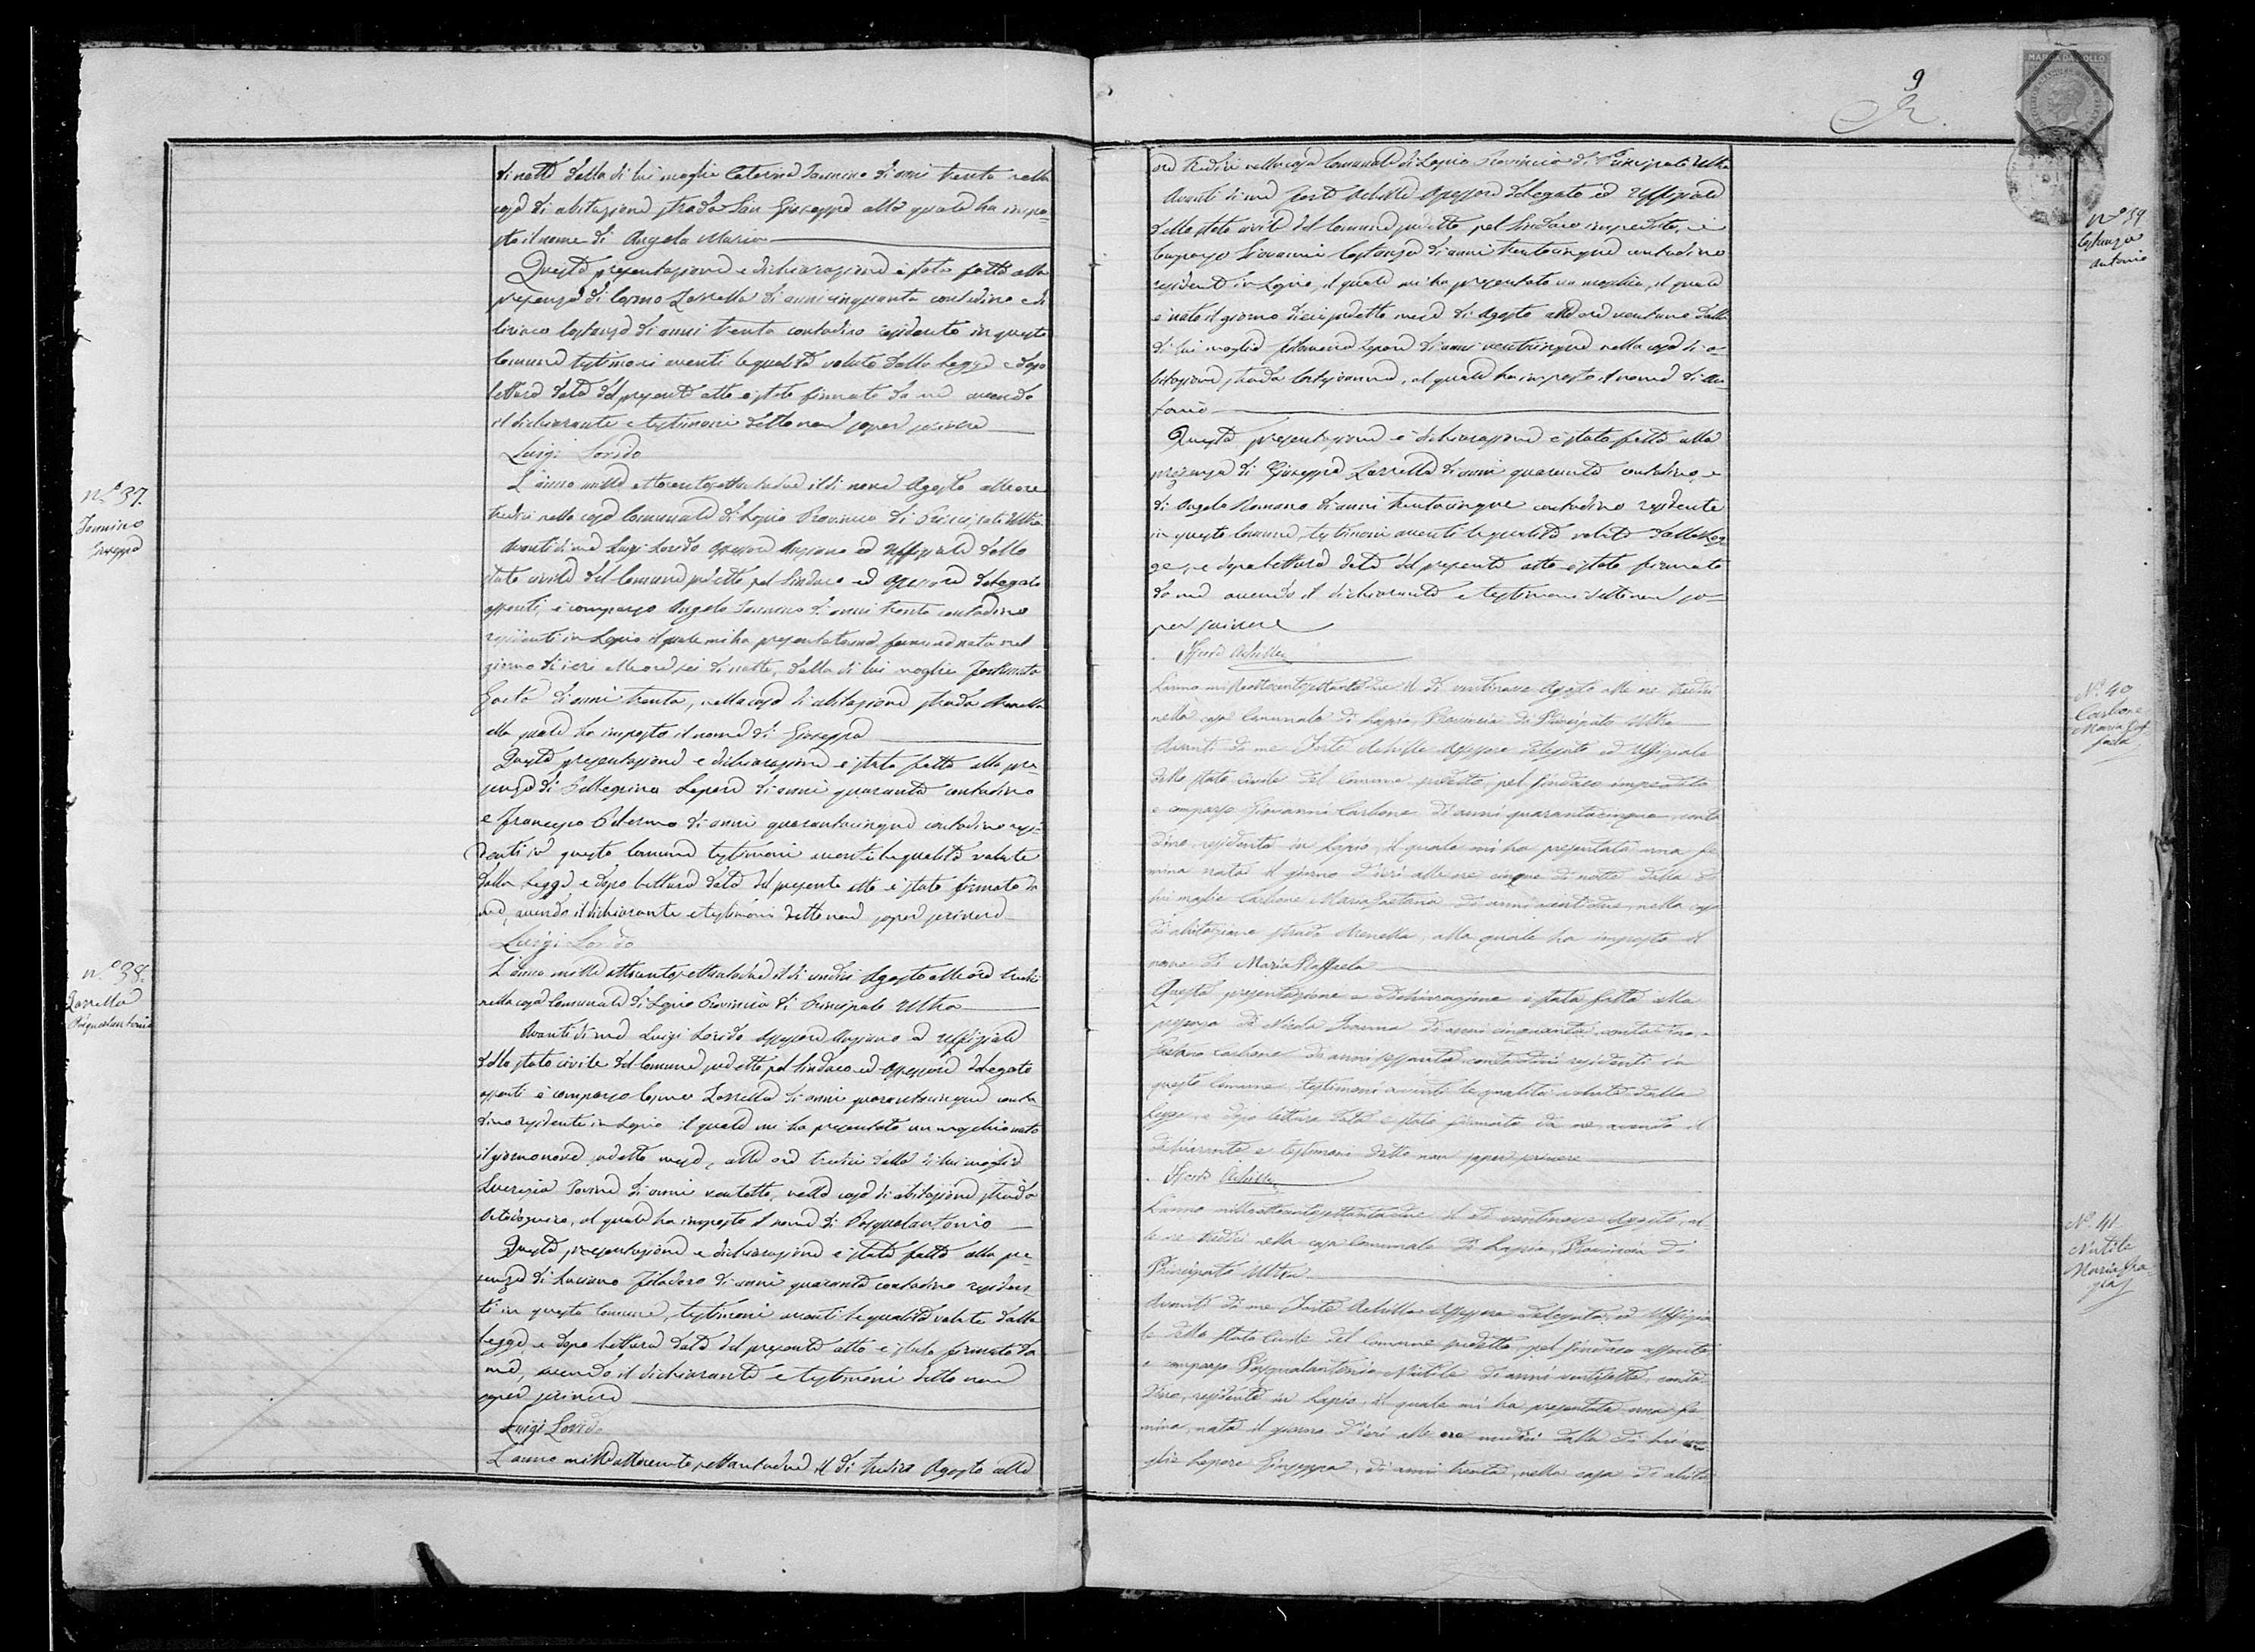 di notte dalla di lui moglie Caterina Iannino di anni trenta nella
casa di abitazione strada San Giuseppe alla quale ha impo-
sto il nome di Angela Maria
Questa presentazione e dichiarazione è stata fatta alla
presenza di Cosmo Zarrella di anni cinquanta contadino e di
Ciriaco Costanza di anni trenta contadino residente in questo
Comune testimoni aventi le qualità volute dalla Legge e dopo
lettura data del presente atto è stato firmato da me avendo
il dichiarante e testimoni detto non saper scrivere
Luigi Lorido
N.° 37.
Iannino
Giuseppa
L'anno mille ottocentosettantadue il dì nove Agosto alle ore
tredici nella casa Comunale di Lapio Provincia di Principato Ultra
Avanti di me Luigi Lorido Assessore Anziano ed Uffiziale dello
stato civile del Comune predetto pel Sindaco ed Assessore delegato
assenti, è comparso Angelo Iannino di anni trenta contadino
residente in Lapio il quale mi ha presentato una femina nata nel
giorno di ieri alle ore sei di notte, dalla di lui moglie Fortunata
di anni trenta, nella casa di abitazione strada Arenella
alla quale ha imposto il nome di Giuseppa
Questa presentazione e dichiarazione è stata fatta alla pre-
senza di Pellegrino Lepore di anni quaranta contadino
e Francesco di anni quarantacinque contadino resi-
denti in questo Comune testimoni aventi le qualità volute
dalla Legge e dopo lettura data del presente atto è stato firmato da
me, avendo il dichiarante e testimoni detto non saper scrivere
Luigi Lorido
N.° 38.
Zarrella
Pasqualantonio
L'anno mille ottocentosettantadue il dì undici Agosto alle ore tredici
nella casa Comunale di Lapio Provincia di Principato Ultra
Avanti di me Luigi Lorido Assessore Anziano ed Uffiziale
dello stato civile del Comune predetto pel Sindaco ed Assessore delegato
assenti è comparso Cosmo Zarrella di anni quarantacinque conta
dino residente in Lapio il quale mi ha presentato un maschio nato
il giorno nove detto mese, alle ore tredici dalla di lui moglie
Lucrezia di anni ventotto, nella casa di abitazione strada
al quale ha imposto il nome di Pasqualantonio
Questa presentazione e dichiarazione è stata fatta alla pre-
senza di Luciano Filadoro di anni quaranta contadino residen-
ti in questo Comune, testimoni aventi le qualità volute dalla
legge, e dopo lettura data del presente atto è stato firmato da
me, avendo il dichiarante e testimoni detto non
saper scrivere
Luigi Lorido
L'anno mille ottocento settantadue il dì tredici Agosto alle
9
MARCA DA BOLLO
N.° 39
Costanza
Antonio
ore tredici nella casa Comunale di Lapio Provincia di Principato Ultra
Avanti di me Forte Achille Assessore delegato ed Uffiziale
dello stato civile del Comune predetto pel Sindaco impedito, è
comparso Giovanni Costanza di anni trentacinque contadino
residente in Lapio, il quale mi ha presentato un maschio, il quale
è nato il giorno dieci predetto mese di Agosto alle ore ventuno dalla
di lui moglie Filomena Lepore di anni venticinque nella casa di a-
bitazione strada, al quale ha imposto il nome di An-
tonio
Questa presentazione e dichiarazione è stata fatta alla
presenza di Giuseppe Zarrella di anni quaranta contadino, e
di Angelo Romano di anni trentacinque contadino residente
in questo Comune, testimoni aventi le qualità volute dalla Leg-
ge, e dopo lettura data del presente atto è stato firmato
da me avendo il dichiarante e testimoni detto non sa-
per scrivere
Forte Achille
N.° 40
Carbone
Maria Raf
faela
L'anno milleottocentosettantadue il dì ventinove Agosto alle ore tredici
nella casa Comunale di Lapio, Provincia di Principato Ultra
Avanti di me Forte Achille Assessore delegato ed Uffiziale
dello stato Civile del Comune predetto, pel Sindaco impedito
è comparso Giovanni Carbone di anni quarantacinque conta
dino, residente in Lapio, il quale mi ha presentata una fe
mina nata il giorno d'ieri alle ore cinque di notte dalla di
lui moglie Carbone Maria Gaetana di anni ventidue, nella casa
di abitazione strada Arenella, alla quale ha imposto il
nome di Maria Raffaela
Questa presentazione e dichiarazione è stata fatta alla
presenza di Nicola di anni cinquanta contadino, e
Carbone di anni sessanta contadini residenti in
questo Comune testimoni aventi le qualità volute dalla
Legge, e dopo lettura data è stato firmato da me avendo il
dichiarante e testimoni detto non saper scrivere
Forte Achille
N.° 41
Nutile
Maria Gra-
zia
L'anno milleottocentosettantadue il dì ventinove Agosto, al
le ore tredici nella casa Comunale di Lapio, Provincia di
Principato Ultra
Avanti di me Forte Achille Assessore delegato, ed Uffizia
le dello Stato Civile del Comune predetto, pel Sindaco assente
è comparso Pasqualantonio Nutile di anni ventisette, conta-
dino, residente in Lapio, il quale mi ha presentata una fe
mina, nata il giorno d'ieri alle ore undici dalla di lui mo
glie Lepore Giuseppa, di anni trenta, nella casa di abita